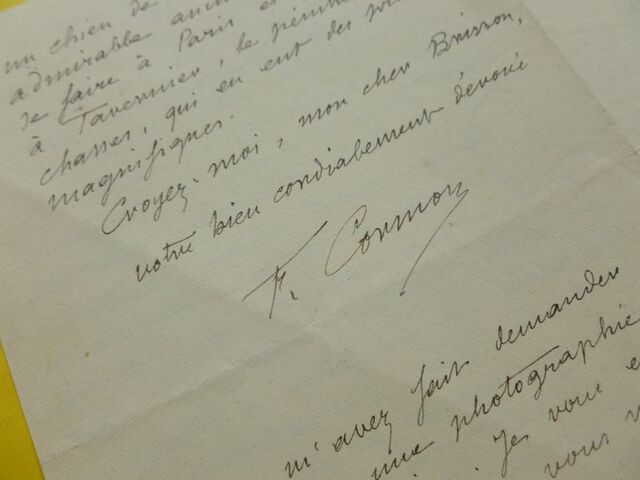 un chien de
admirable
se faire à Paris
à Tavernier, le peintre
chasses, qui en eut des
magnifiques.
Croyez-moi, mon cher Brisson,
votre bien cordialement dévoué
F. Cormon
m'avez fait demander
une photographie
Je vous
vous